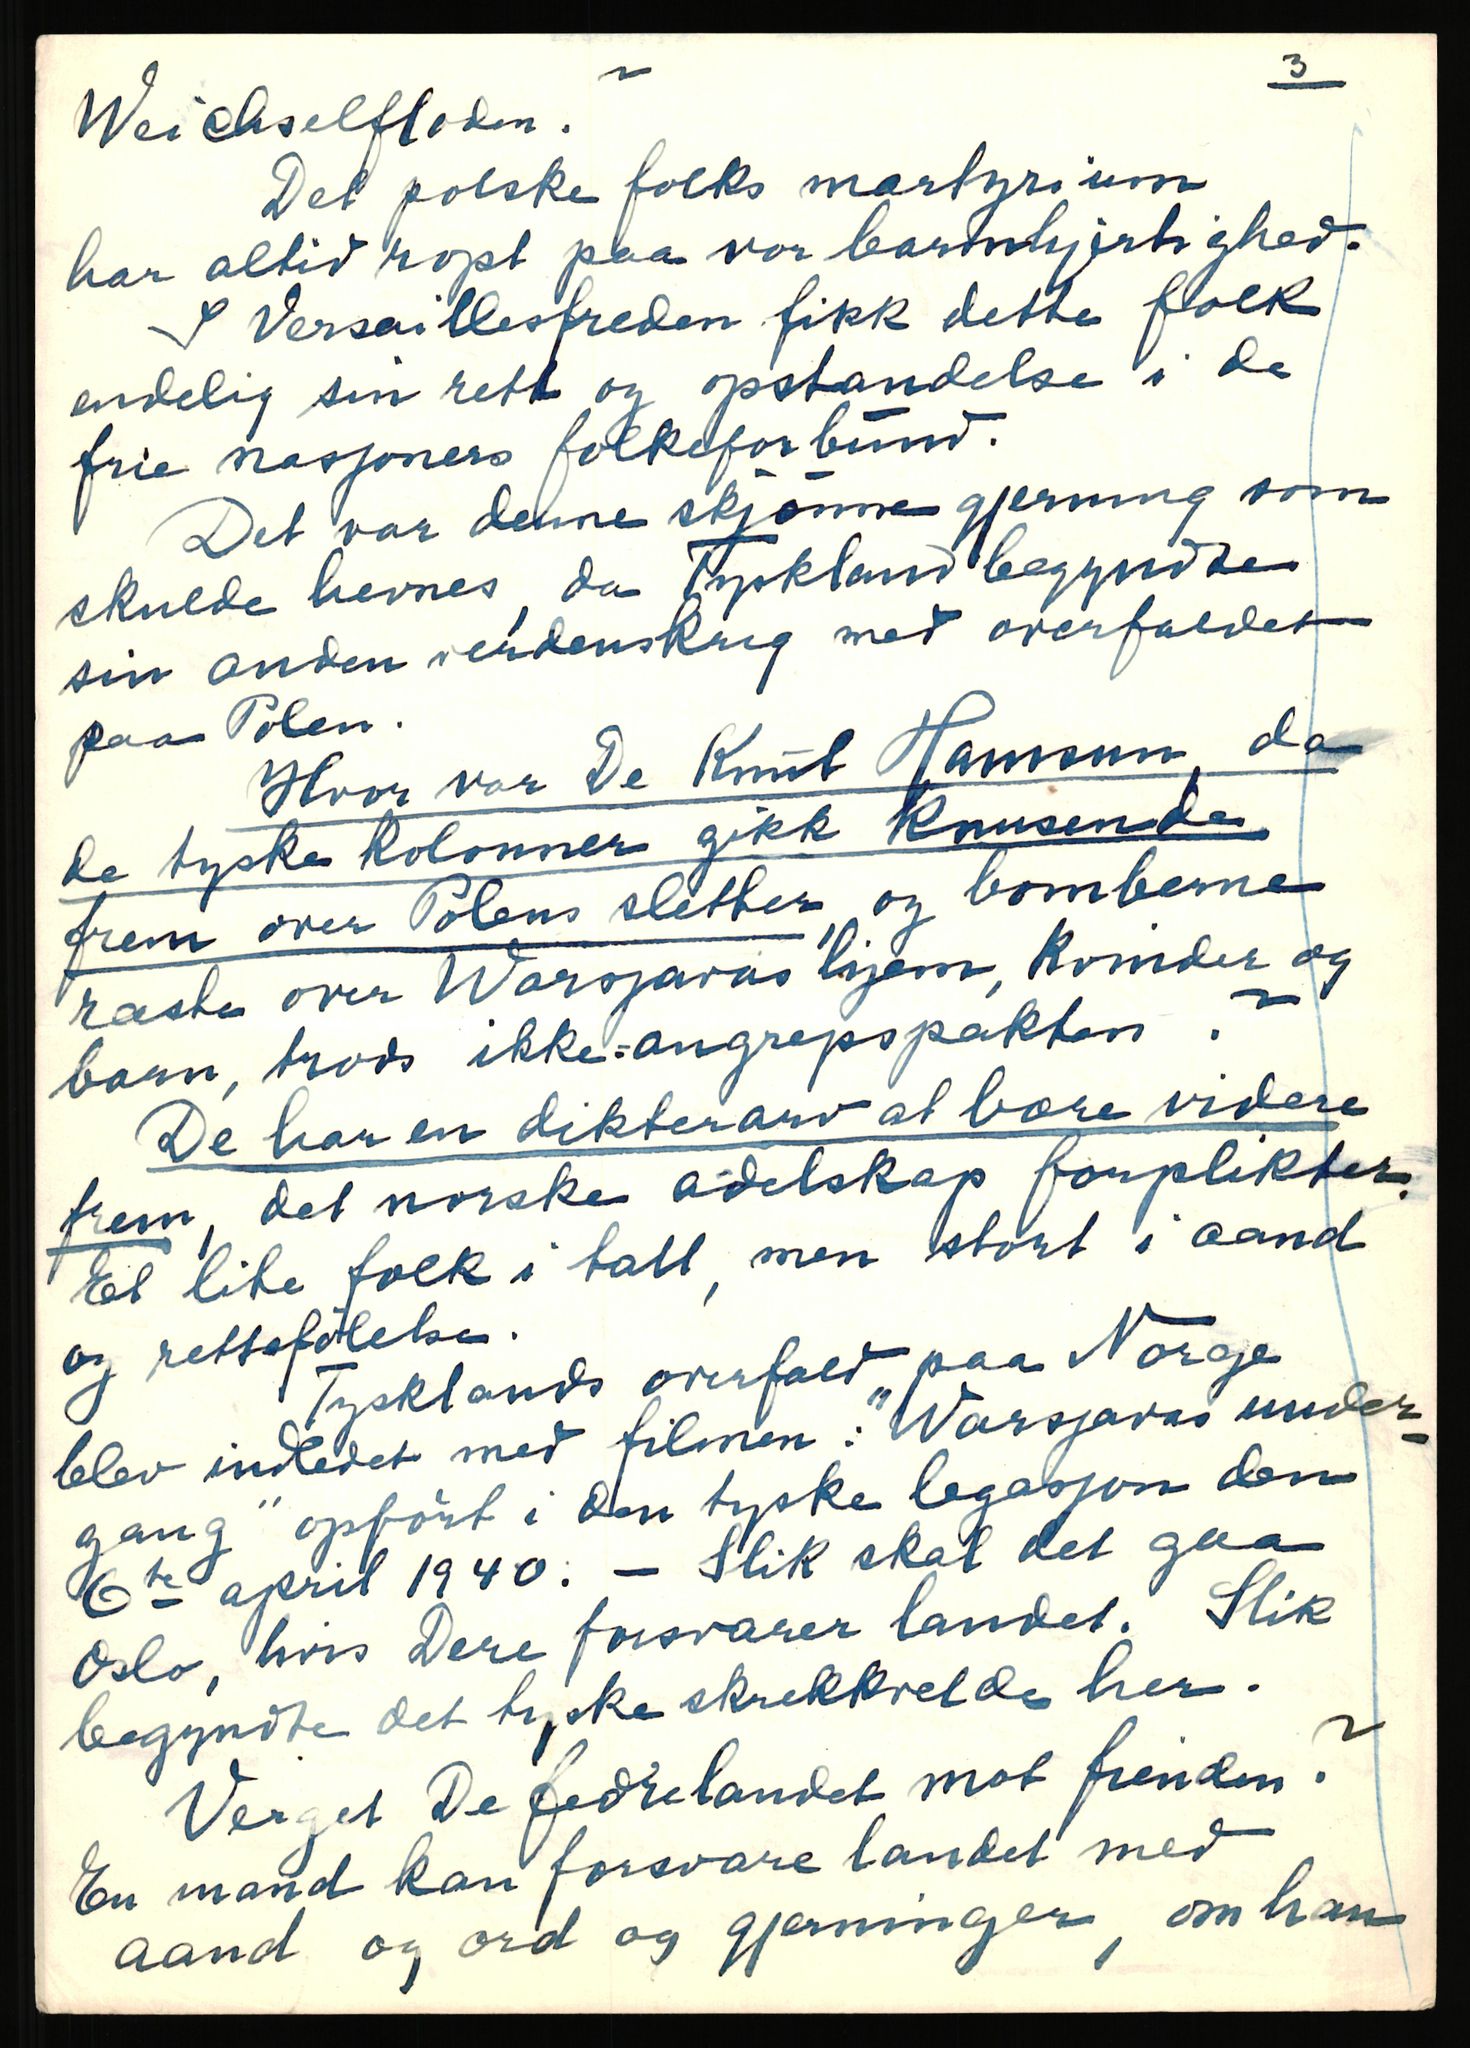 3
Weichselfloden.
Det polske folks martyrium
har altid ropt paa vor barmhjertighed.
I Versaillesfreden fikk dette folk
endelig sin rett og opstandelse i de
frie nasjoners folkeforbund.
Det var denne skjønne gjerning som
skulde hevnes, da Tyskland begyndte
sin anden verdenskrig med overfaldet
paa Polen.
Hvor var De Knut Hamsun, da
de tyske kolonner gikk knusende
frem over Polens sletter, og bomberne
raste over Warsjavas hjem, kvinder og
barn, trods ikke-angrepspakten?
De har en dikterarv at bære videre
frem, det norske adelskap forplikter.
Et lite folk i tall, men stort i aand
og rettsfølelse.
Tysklands overfald paa Norge
blev indledet med filmen: "Warsjavas under-
gang" opført i den tyske legasjon den
6te april 1940. - Slik skal det gaa
Oslo, hvis Dere forsvarer landet. Slik
begyndte det tyske skrekkvelde her.
Verget De fedrelandet mot fienden?
En mand kan forsvare landet med
aand og ord og gjerninger, om han